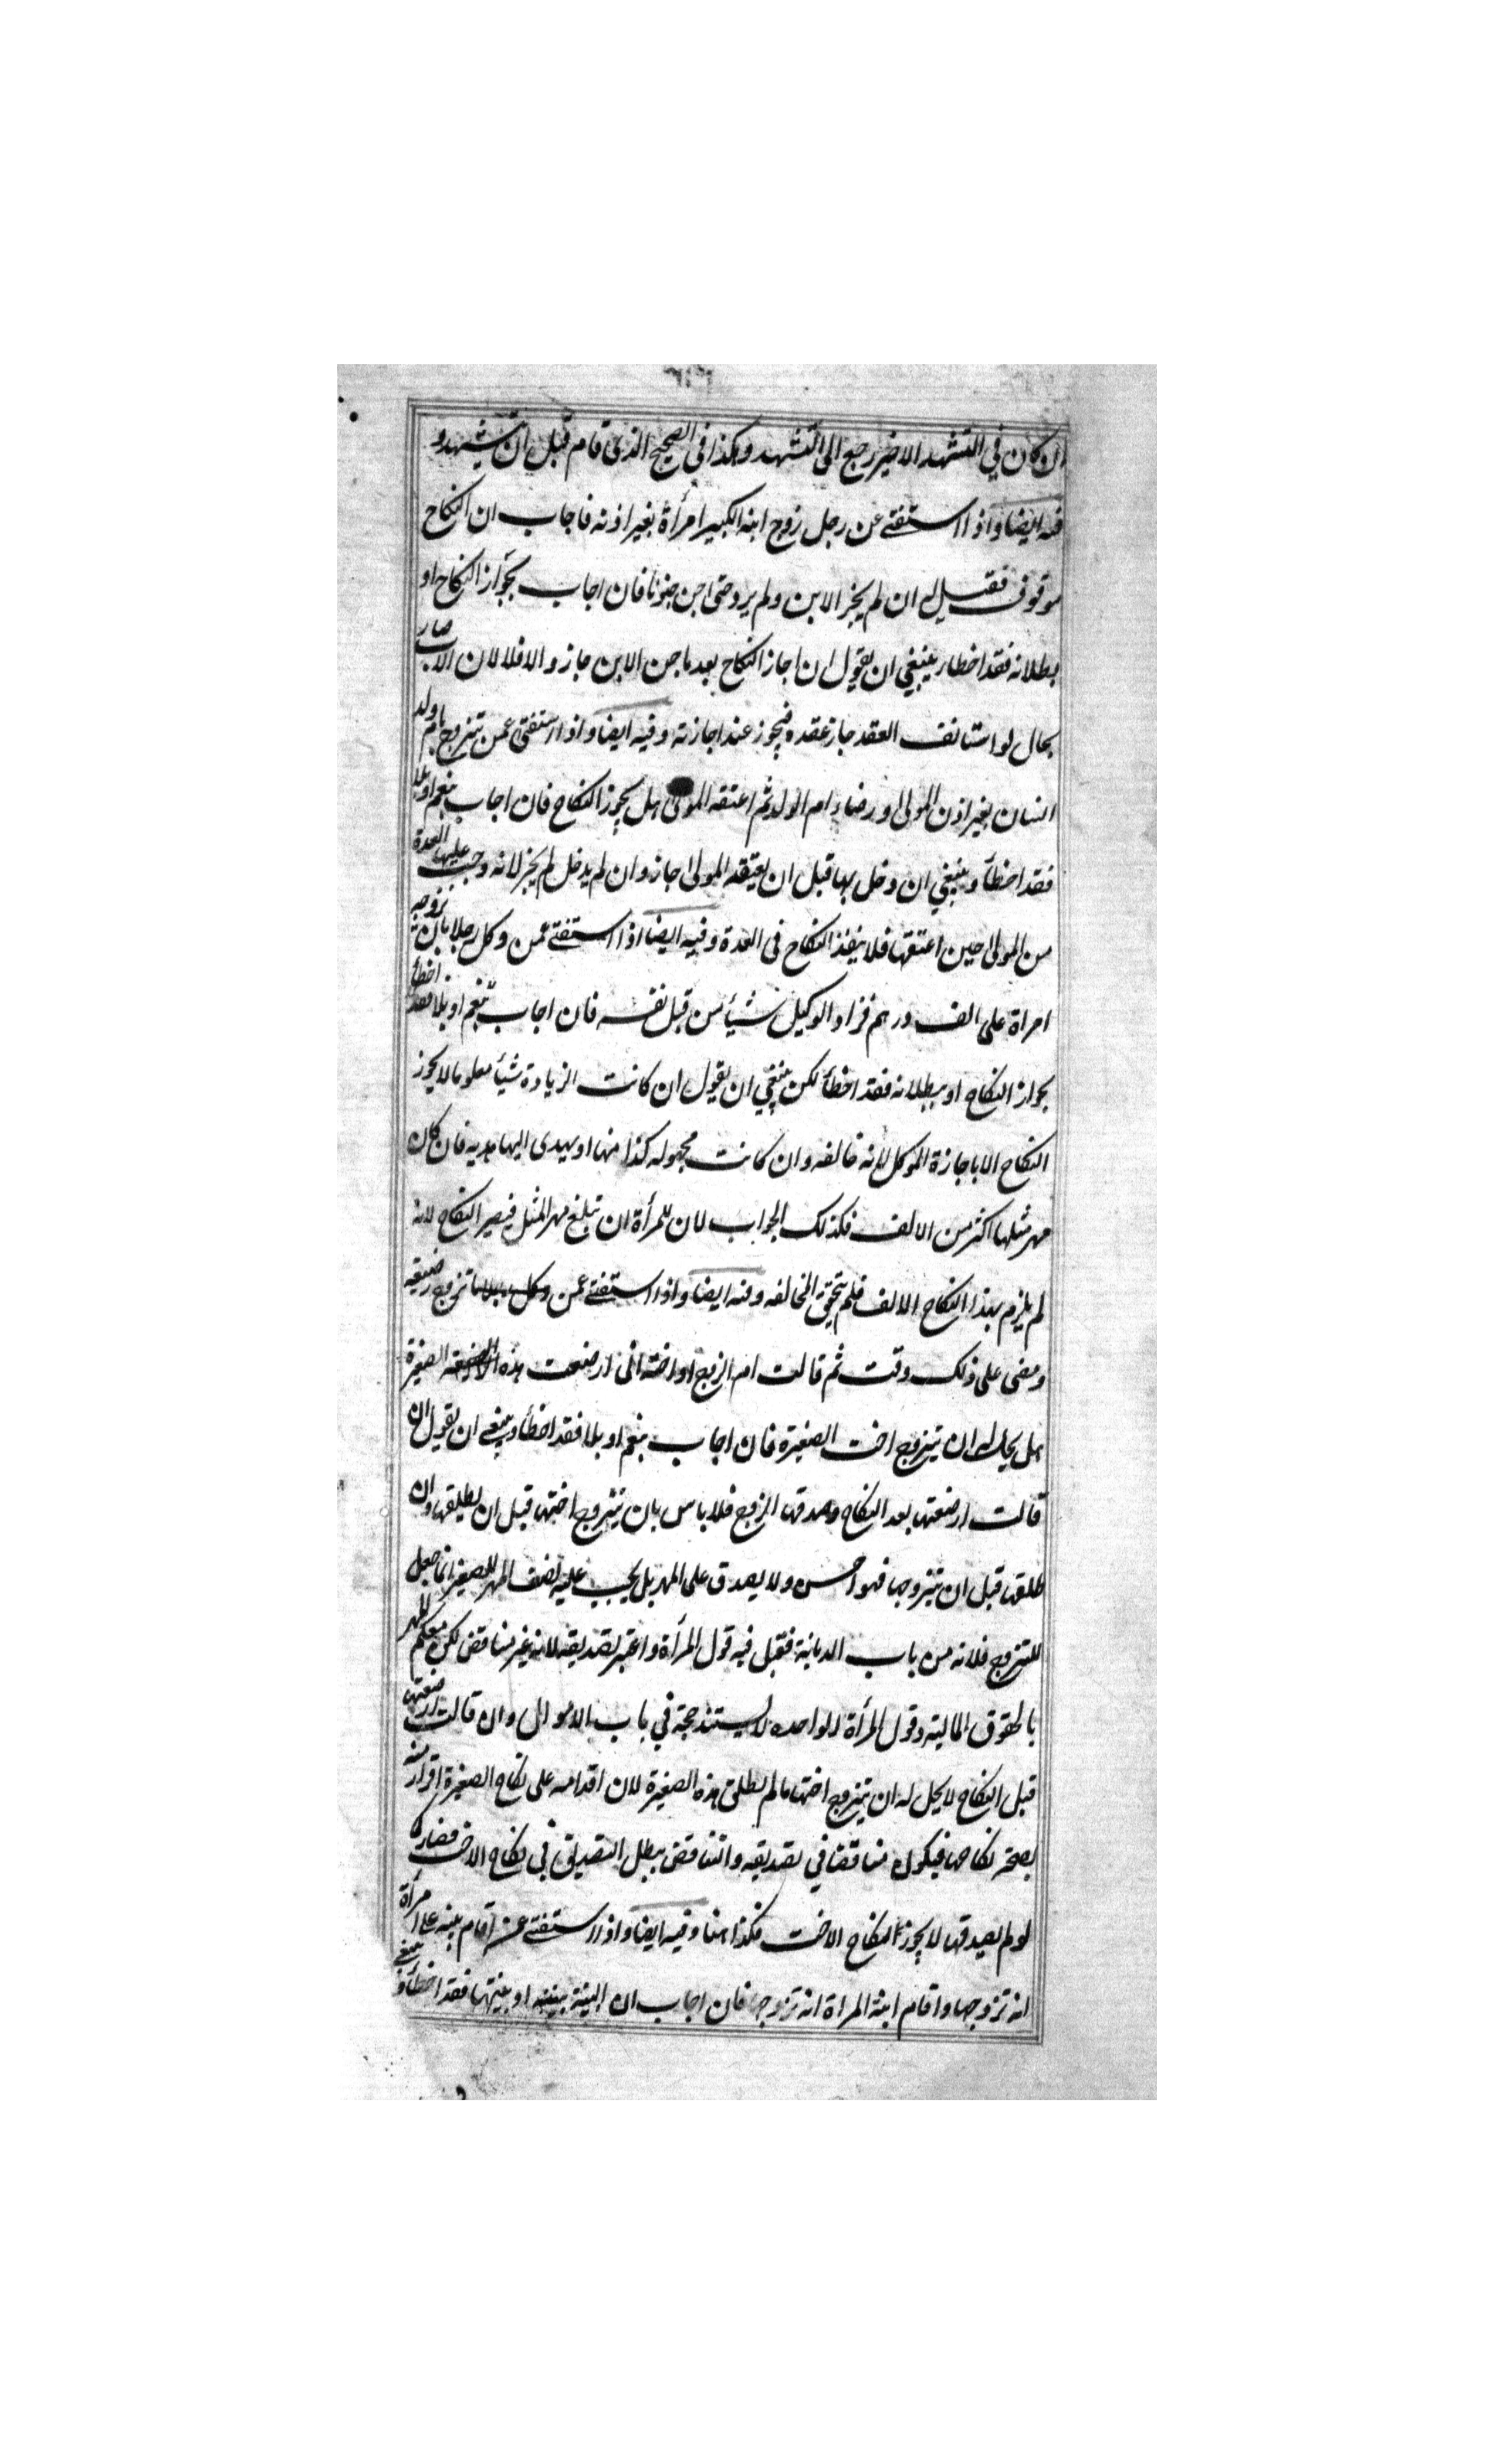 ان كان في التشهد الاخير رجع الى التشهد وهكذا في الصحيح الذى قام قبل ان يتشهد و
فيه ايضا واذا استفتى عن رجل زوج ابنه الكبير امرأة بغير اذنه فاجاب ان النكاح
موقوف فقيل له ان لم يخبر الابن ولم يرد حتى جن جنونا فان اجاب بجواز النكاح او
بطلانه فقد اخطا ينبغي ان يقول ان اجاز النكاح بعد ما جن الابن جاز والا فلا لان الاب صار
بحال لو استانف العقد جاز عقده فيجوز عند اجازته وفيه ايضا واذا استفتى عمن تزوج بام ولد
انسان بغير اذن المولى ورضاء ام الولد ثم اعتقه المولى هل يجوز النكاح فان اجاب بنعم او بلا
فقد اخطأ وينبغي ان دخل بها قبل ان يعتقه المولى جاز وان لم يدخل لم يجز لانه وجبت عليها العدة
من المولى حين اعتقها فلا ينفذ النكاح فى العدة وفيه ايضا اذا استفتى عمن وكل رجلا بان تزوجه
امراة على الف درهم فزاد الوكيل شيأ من قبل نفسه فان اجاب بنعم او بلا فقد اخطأ
بجواز النكاح او ببطلانه فقد اخطأ لكن ينبغي ان يقول ان كانت الزيادة شيأ معلوما لا يجوز
النكاح الا باجازة الموكل لانه خالفه وان كانت مجهوله كذا منها او يهدى اليها هديه فان كان
مهر مثلها اكثر من الالف فكذلك الجواب لان للمرأة ان تبلغ مهر المثل فيصير النكاح لانه
لم يلزم بهذا النكاح الا الالف فلم يتحقق المخالفه وفيه ايضا واذا استفتى عمن وكل تزوج رضيعه
ومضى على ذلك وقت ثم قالت ام الزوج او اخته انى ارضعت هذه الصغيرة
هل يحل له ان يتزوج اخت الصغيرة فان اجاب بنعم او بلا فقد اخطأ وينبغي ان يقول ان
قالت ارضعتها بعد النكاح وصدقها الزوج فلا باس بان يتزوج اختها قبل ان يطلقها وان
طلقها قبل ان يتزوجها فهو احسن ولا يصدق على المهر بل يجب عليه نصف المهر للصغير انما جعل
للتزوج فلانه من باب الديانة فقبل فيه قول المرأة واعتبر تصديقه لانه غير مناقض لكن معكم المهر
بالحقوق المالية وقول المرأة الواحده لا يستند حجة في باب الاموال وان قالت ارضعتها
قبل النكاح لا يحل له ان يتزوج اختها ما لم يطلق هذه الصغيرة لان اقدامه على نكاح الصغيرة اقرار منه
بصحة نكاحها فيكون مناقضا في تصديقه والتناقض يبطل التصديق في نكاح الاخت فصار كا
لو لم يصدقها لا يجوز النكاح الاخت فكذا هنا وفيه ايضا واذا استفتى عمن اقام بينه على امرأة
انه تزوجها واقام ابنة المراة انه تزوجها فان اجاب ان البينة بينته او بينتها فقد اخطأ وينبغي